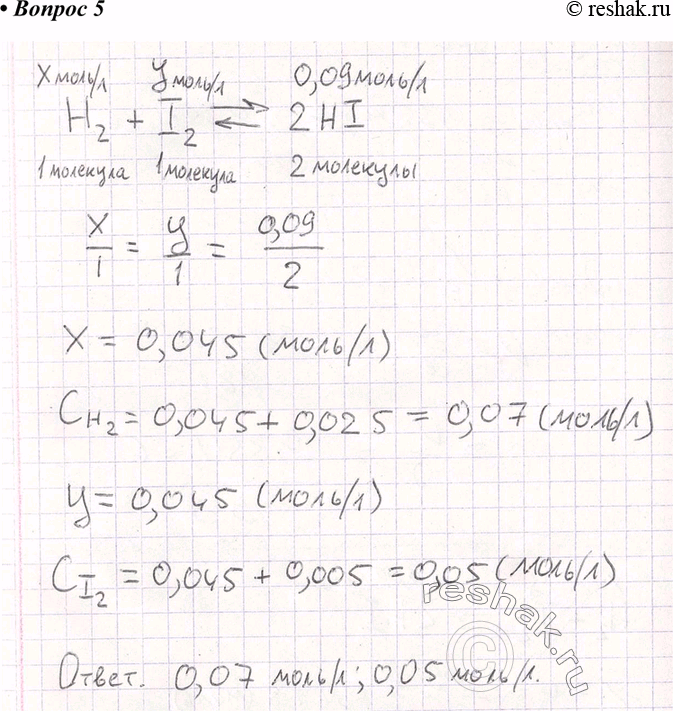 • Вопрос 5
© reshak.ru
X моль/л y моль/л 0,09 моль/л
H2 + I2 ⇄ 2HI
1 молекула 1 молекула 2 молекулы
X/1 = y/1 = 0,09/2
X = 0,045 (моль/л)
CH2 = 0,045 + 0,025 = 0,07 (моль/л)
y = 0,045 (моль/л)
CI2 = 0,045 + 0,005 = 0,05 (моль/л)
reshak.ru
©
Ответ. 0,07 моль/л; 0,05 моль/л.